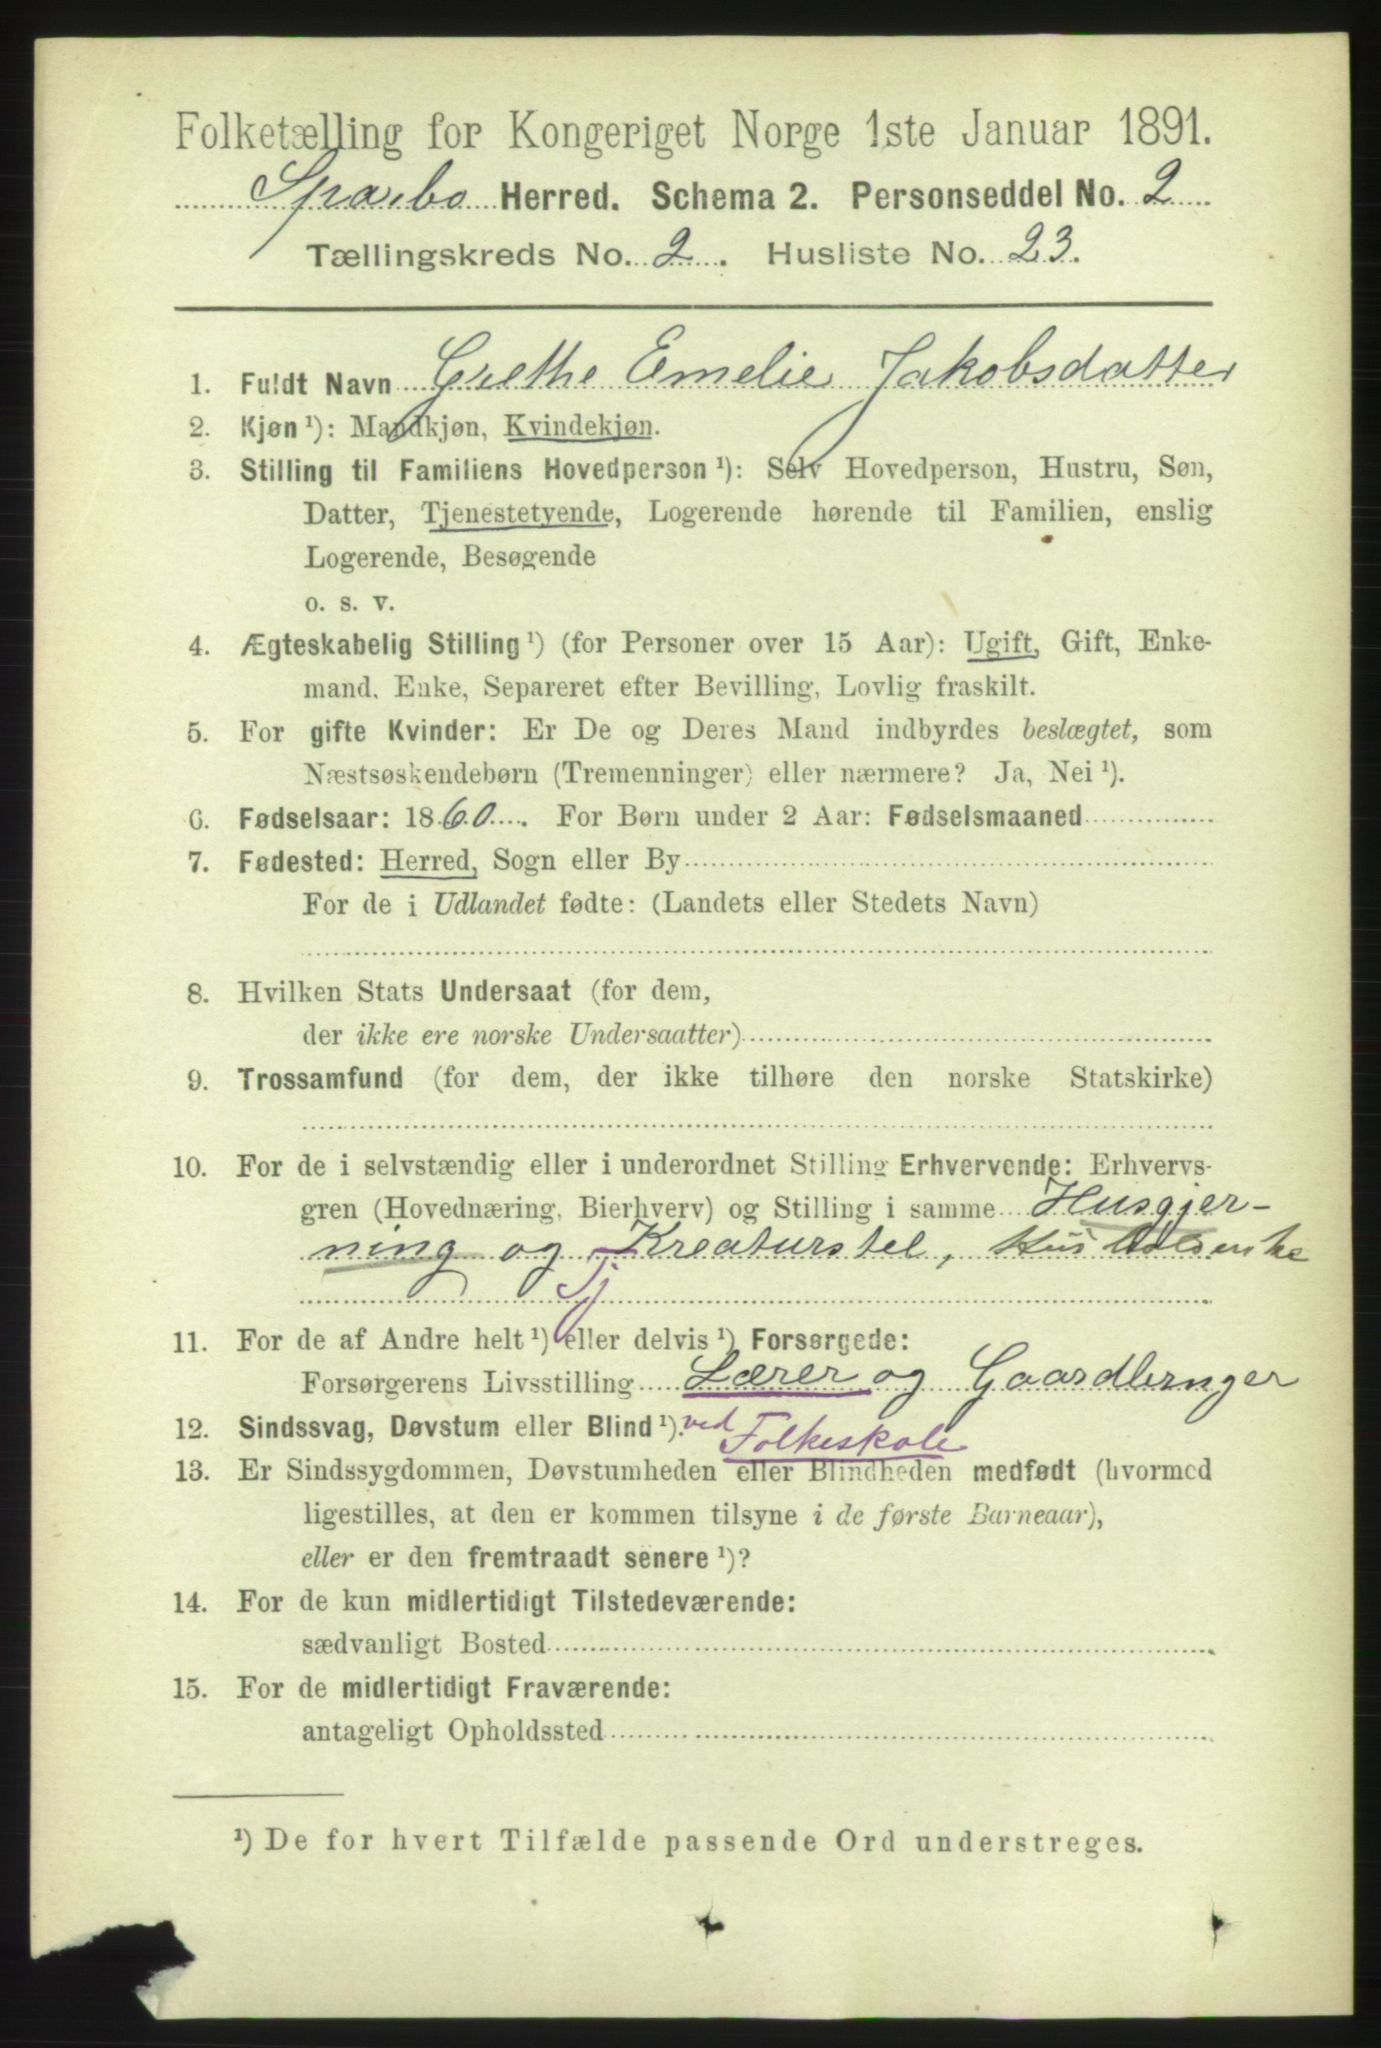 Folketælling for Kongeriget Norge 1ste Januar 1891.
Sparbo Herred. Schema 2. Personseddel No. 2
Tællingskreds No. 2. Husliste No. 23.
1. Fuldt Navn Grethe Emelie Jakobsdatter
2. Kjøn ¹): Mandkjøn, Kvindekjøn.
3. Stilling til Familiens Hovedperson ¹): Selv Hovedperson, Hustru, Søn,
Datter, Tjenestetyende, Logerende hørende til Familien, enslig
Logerende, Besøgende
o. s. v.
4. Ægteskabelig Stilling ¹) (for Personer over 15 Aar): Ugift, Gift, Enke-
mand, Enke, Separeret efter Bevilling, Lovlig fraskilt.
5. For gifte Kvinder: Er De og Deres Mand indbyrdes beslægtet, som
Næstsøskendebørn (Tremenninger) eller nærmere? Ja, Nei ¹).
6. Fødselsaar: 1860. For Børn under 2 Aar: Fødselsmaaned
7. Fødested: Herred, Sogn eller By
For de i Udlandet fødte: (Landets eller Stedets Navn)
8. Hvilken Stats Undersaat (for dem,
der ikke ere norske Undersaatter)
9. Trossamfund (for dem, der ikke tilhøre den norske Statskirke)
10. For de i selvstændig eller i underordnet Stilling Erhvervende: Erhvervs-
gren (Hovednæring, Bierhverv) og Stilling i samme Husgjer-
ning og Kreaturstel,
Tj
11. For de af Andre helt ¹) eller delvis ¹) Forsørgede:
Forsørgerens Livsstilling Lærer og Gaardbruger
12. Sindssvag, Døvstum eller Blind ¹). ved Folkeskole
13. Er Sindssygdommen, Døvstumheden eller Blindheden medfødt (hvormed
ligestilles, at den er kommen tilsyne i de første Barneaar),
eller er den fremtraadt senere ¹)?
14. For de kun midlertidigt Tilstedeværende:
sædvanligt Bosted
15. For de midlertidigt Fraværende:
antageligt Opholdssted
¹) De for hvert Tilfælde passende Ord understreges.